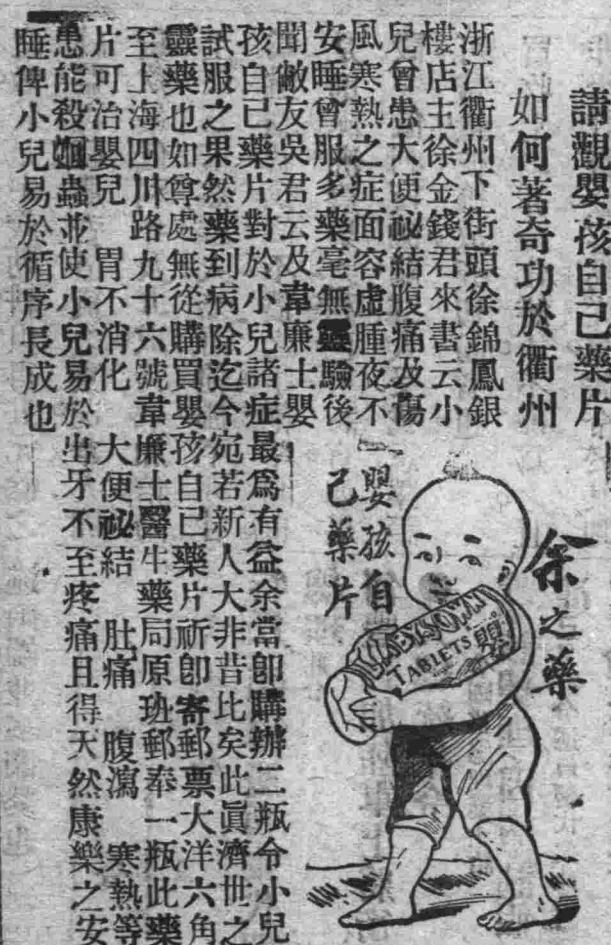 請觀嬰孩自己藥片
如何著奇功於衢州
浙江衢州下街頭徐錦鳳銀
樓店主徐金錢君來書云小
兒曾患大便祕結腹痛及傷
風寒熱之症面容虛腫夜不
安睡曾服多藥毫無靈驗後
聞敝友吳君云及韋廉士嬰
孩自己藥片對於小兒諸症最爲有益余當卽購辦二瓶令小兒
試服之果然藥到病除迄今宛若新人大非昔比矣此眞濟世之
靈藥也如尊處無從購買嬰孩自己藥片祈卽寄郵票大洋六角
至上海四川路九十六號韋廉士醫生藥局原班郵奉一瓶此藥
片可治嬰兒 胃不消化 大便祕結 肚痛 腹瀉 寒熱等
患能殺蛔蟲並使小兒易於出牙不至疼痛且得天然康樂之安
睡俾小兒易於循序長成也
余之藥
嬰孩自
己藥片
BABY'S OWN
TABLETS